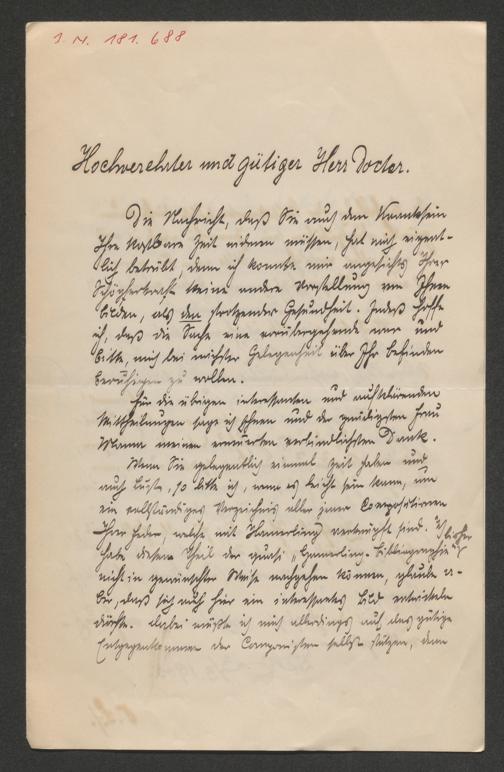 J. N. 181.688
Hochverehrter und gütiger Herr Doctor.
Die Nachricht, daß Sie auch dem Kranksein
Ihre kostbare Zeit widmen müssen, hat mich eigent-
lich betrübt, denn ich konnte mir angesichts Ihrer
Schöpferkraft keine andere Vorstellung von Ihnen
bilden, als den strotzender Gesundheit. Indeß hoffe
ich, daß die Sache eine vorübergehende war und
bitte, mich bei nächster Gelegenheit über Ihr Befinden
beruhigen zu wollen.
Für die übrigen interessanten und aufklärenden
Mittheilungen sage ich Ihnen und der gnädigsten Frau
Mama meinen erneuerten verbindlichsten Dank.
Wenn Sie gelegentlich einmal Zeit haben und
auch Lust, so bitte ich, wenn es leicht sein kann, um
ein vollständiges Verzeichnis aller jener Compositionen
Ihrer Feder, welche mit Hamerling verknüpft sind. Ich
habe diesem Theil der quasi „Hamerling-Bibliographie“ bisher
nicht in gewünschter Weise nachgehen können, glaube a-
ber, daß sich auch hier ein interessantes Bild entwickeln
dürfte. Dabei müßte ich mich allerdings auf das gütige
Entgegenkommen der Componisten selbst stützen, denn